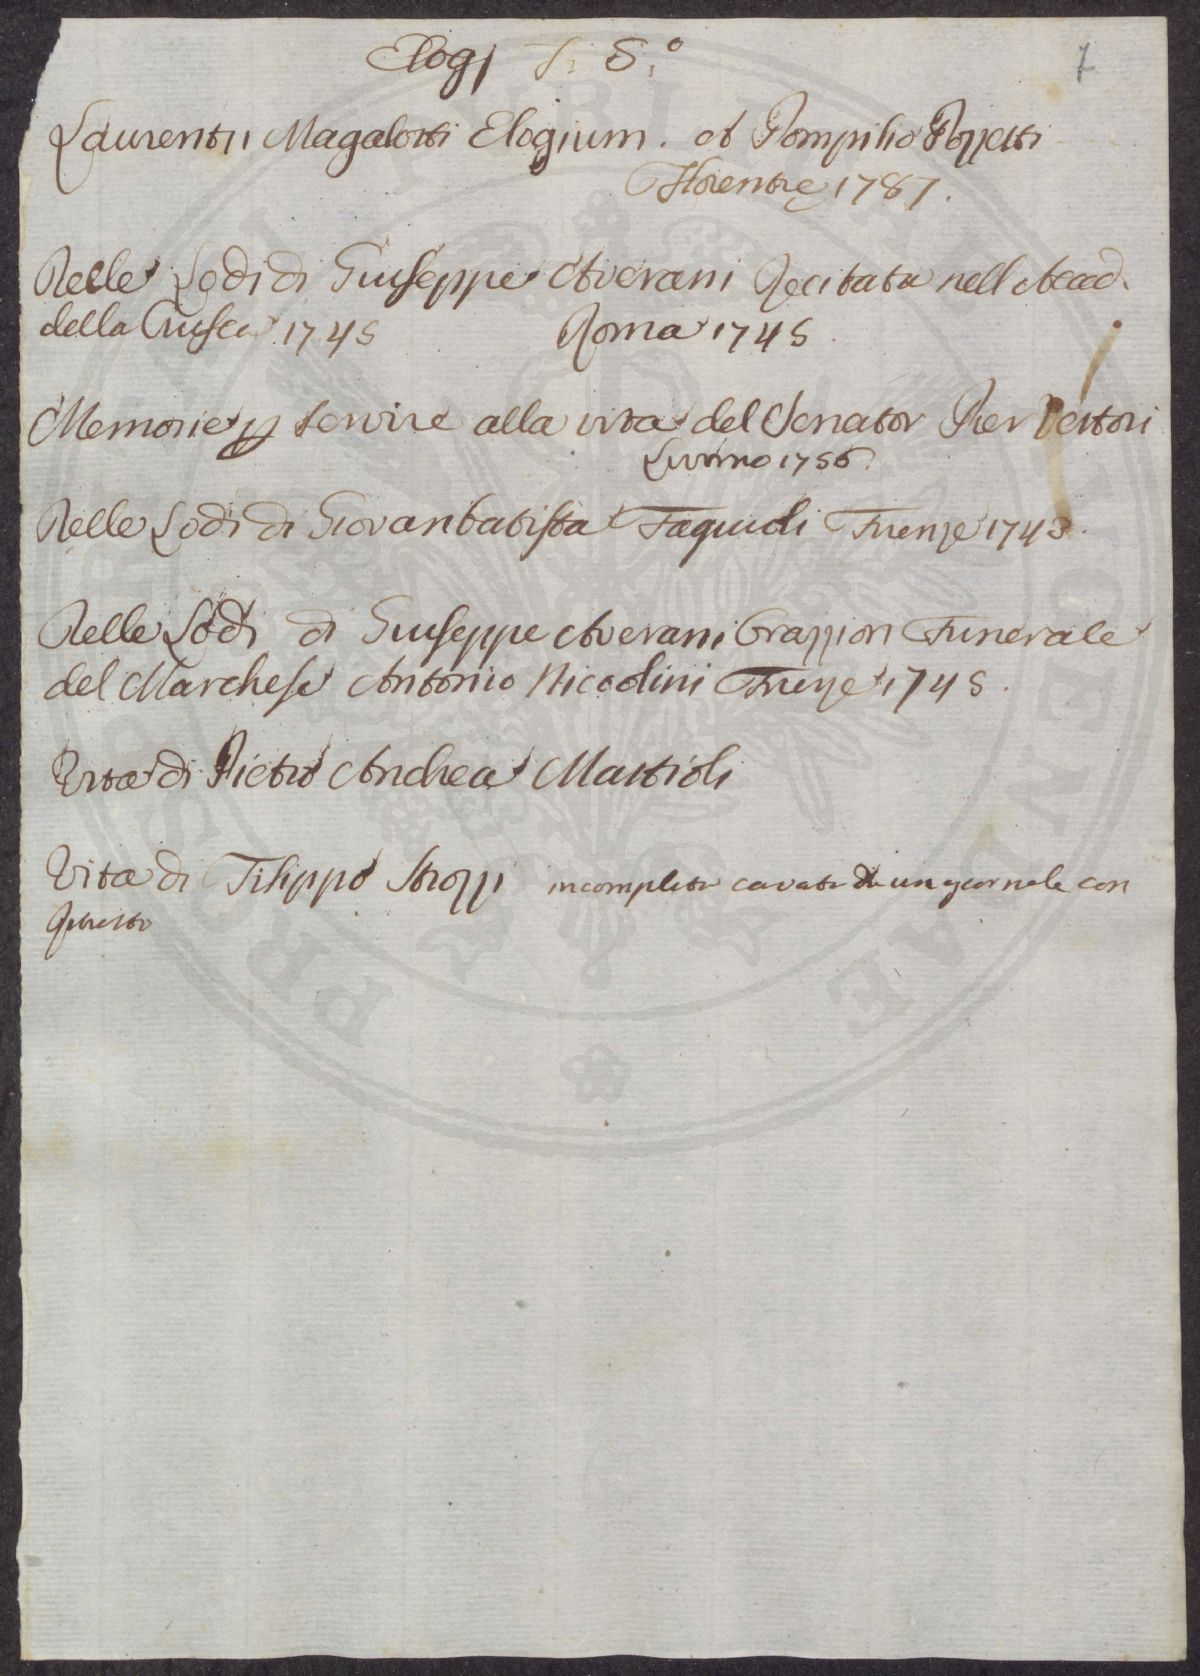 Elogj T. 5.º
7
Laurentii Magalotti Elogium. at Pompilio Pozzetti
Florentie 1787.
Delle Lodi di Giuseppe Averani Recitata nell Acad.
della Crusca 1745 Roma 1745.
Memorie p servire alla vita del Senator Pier Vettori
Livorno 1756.
Delle Lodi di Giovanbatista Fagiuoli Firenze 1743.
Delle Lodi di Giuseppe Averani Orazzion Funerale
del Marchese Antonio Niccolini Firenze 1745.
Vita di Pietro Andrea Mattioli
Vita di Filippo Strozzi incompleta cavata da un giornale con